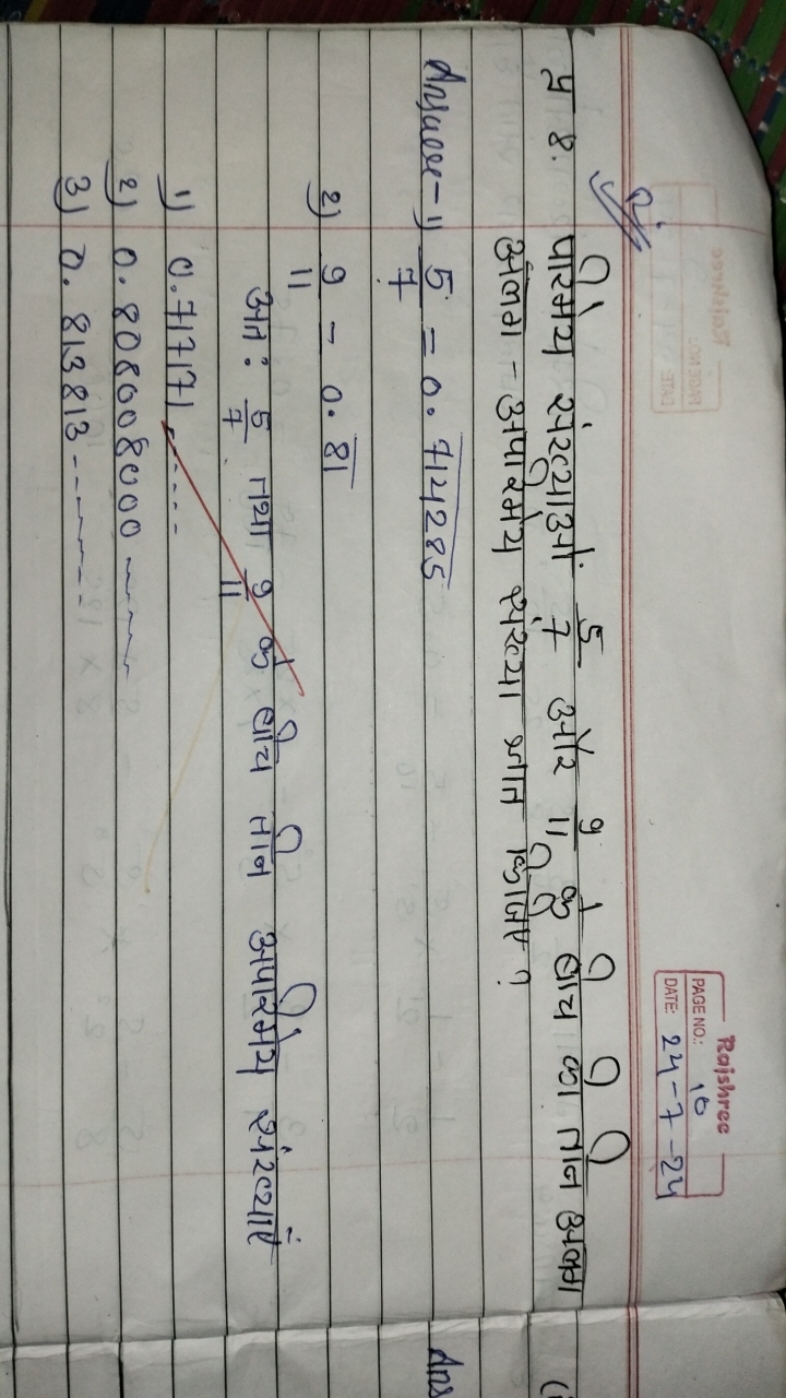 Rajshree
PAGE NO.: 10
DATE: 24-7-24
प्र 8. परिमेय संख्याओं 5/7 और 9/11 के बीच की तीन अलग
अलग - अपरिमेय संख्या ज्ञात किजिए ?
Answer- 1) 5/7 = 0.7̅1̅4̅2̅8̅5̅
2) 9/11 - 0.8̅1̅
अत: 5/7 तथा 9/11 के बीच तीन अपरिमेय संख्याएं
1) 0.717171.....
2) 0.808008000------
3) 0.813813-------
Ans